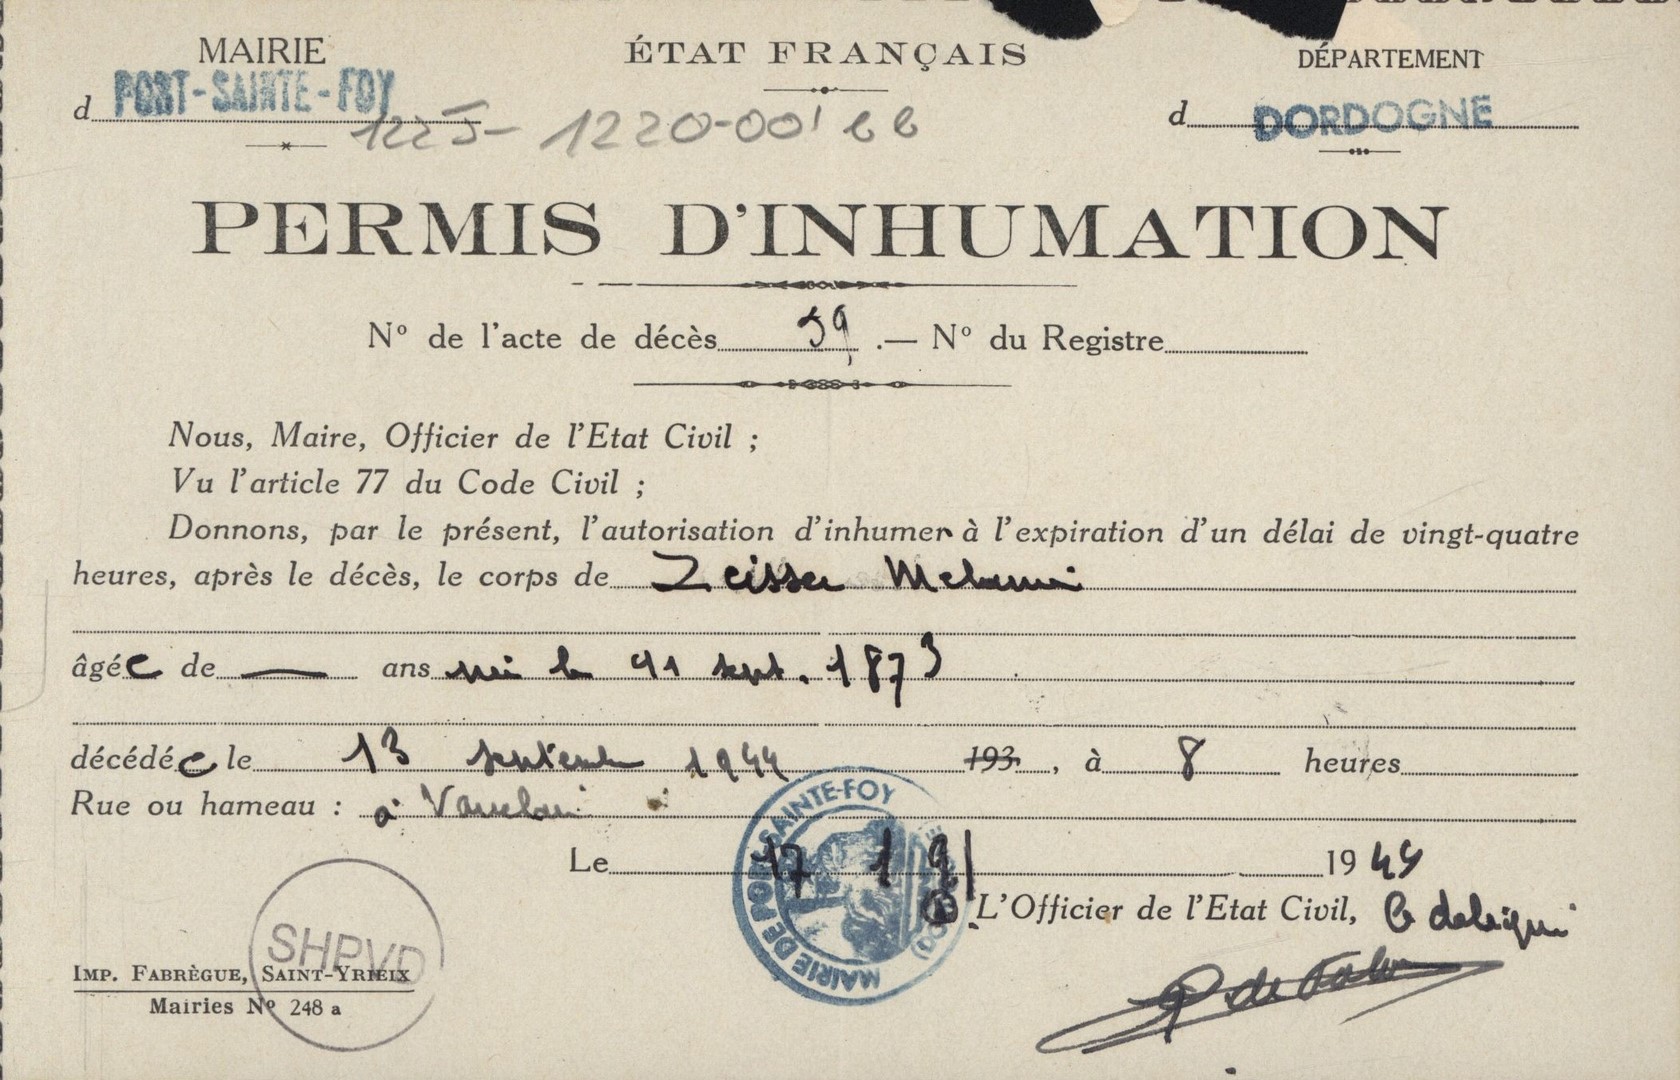 MAIRIE
ÉTAT FRANÇAIS
DÉPARTEMENT
d PORT-SAINTE-FOY
d DORDOGNE
122J- 1220-001 bb
PERMIS D'INHUMATION
Nº de l'acte de décès 59 .— Nº du Registre
Nous, Maire, Officier de l'Etat Civil ;
Vu l'article 77 du Code Civil ;
Donnons, par le présent, l'autorisation d'inhumer à l'expiration d'un délai de vingt-quatre
heures, après le décès, le corps de Zeisser
âgée de — ans née le 11 sept. 1873
décédée le 13 septembre 1944 193 , à 8 heures
Rue ou hameau : à
Le 17 / 9 / 1944
L'Officier de l'Etat Civil, le délégué
MAIRIE DE PORT-SAINTE-FOY
SHPVD
IMP. FABRÈGUE, SAINT-YRIEIX
Mairies Nº 248 a